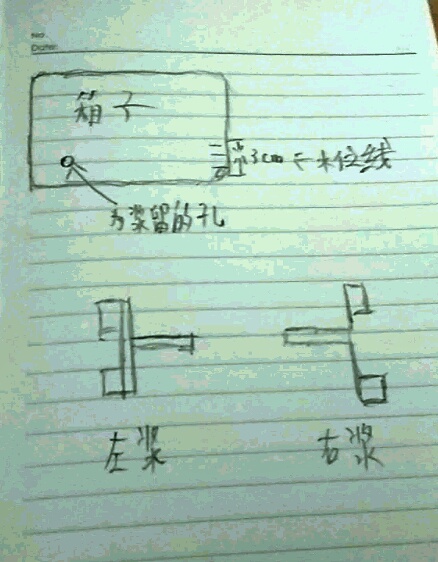 No
Date
箱子
3cm ← 水位线
为浆留的孔
左浆
右浆